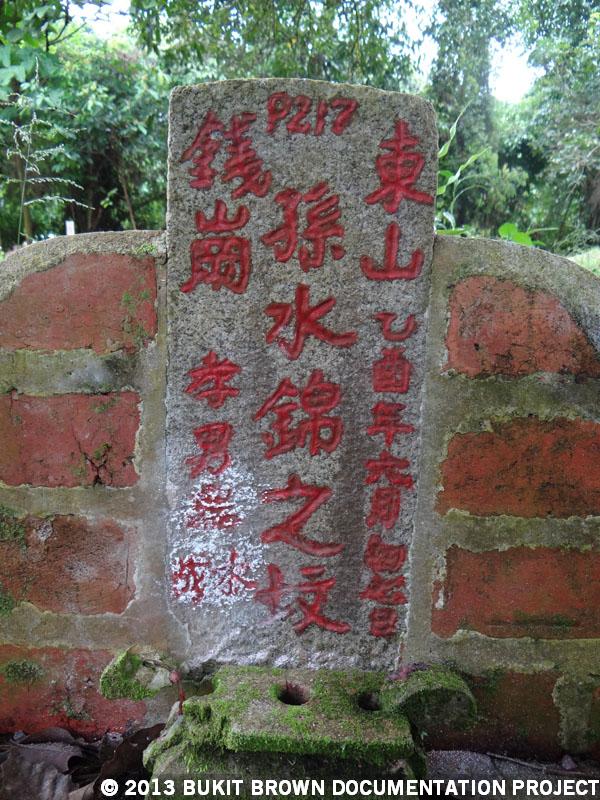 9217
東山
乙酉年六月初日
孫水錦之墳
錢
孝男
水
成
© 2013 BUKIT BROWN DOCUMENTATION PROJECT